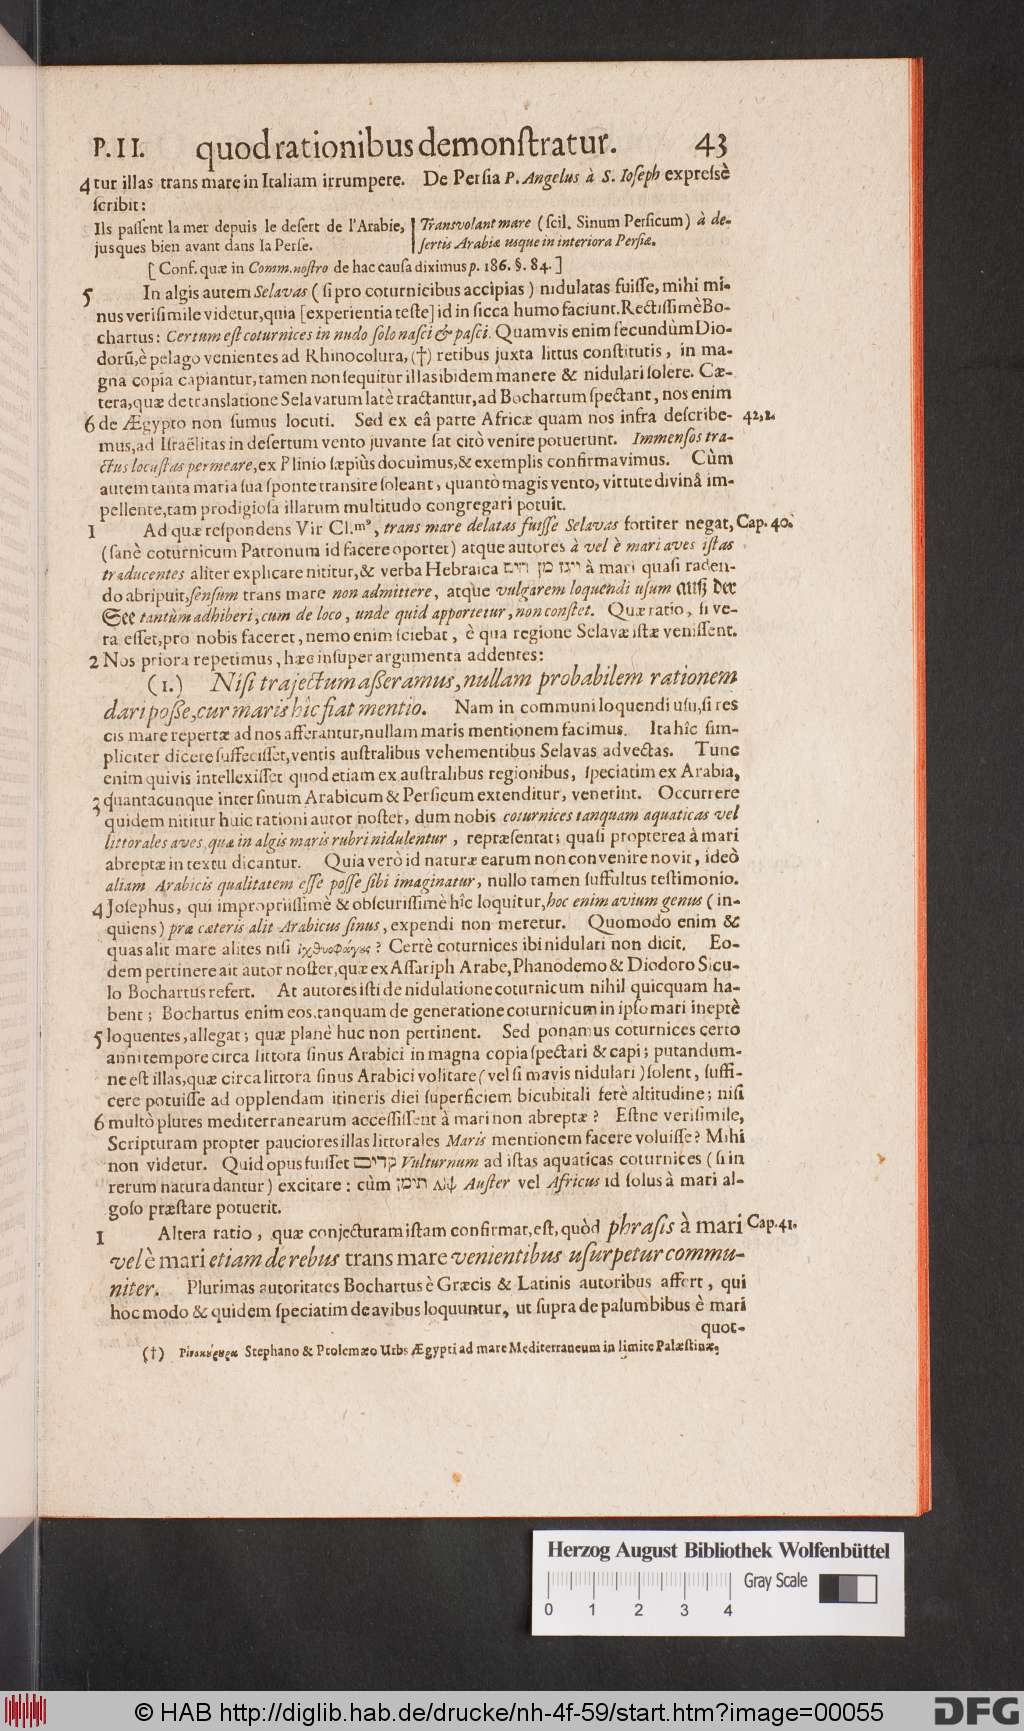 P. II. quod rationibus demonſtratur. 43
4 tur illas trans mare in Italiam irrumpere. De Perſia P. Angelus à S. Ioſeph expreſsè
ſcribit:
Ils paſſent la mer depuis le deſert de l'Arabie,
jusques bien avant dans la Perſe.
Transvolant mare (ſcil. Sinum Perſicum) à de-
ſertis Arabiæ usque in interiora Perſiæ.
[Conf. quæ in Comm. noſtro de hac cauſa diximus p. 186. §. 84.]
5 In algis autem Selavas (ſi pro coturnicibus accipias) nidulatas fuiſſe, mihi mi-
nus veriſimile videtur, quia [experientia teſte] id in ſicca humo faciunt. Rectiſſimè Bo-
chartus: Certum eſt coturnices in nudo ſolo naſci & paſci. Quamvis enim ſecundùm Dio-
dorũ, è pelago venientes ad Rhinocolura, (†) retibus juxta littus conſtitutis, in ma-
gna copia capiantur, tamen non ſequitur illas ibidem manere & nidulari ſolere. Cæ-
tera, quæ de translatione Selavarum latè tractantur, ad Bochartum ſpectant, nos enim
6 de Ægypto non ſumus locuti. Sed ex eâ parte Africæ quam nos infra deſcribe- 42,1.
mus, ad Iſraëlitas in deſertum vento juvante ſat citò venire potuerunt. Immenſos tra-
ctus locuſtas permeare, ex Plinio ſæpiùs docuimus, & exemplis confirmavimus. Cùm
autem tanta maria ſua ſponte transire ſoleant, quantò magis vento, virtute divinâ im-
pellente, tam prodigioſa illarum multitudo congregari potuit.
1 Ad quæ reſpondens Vir Cl.mꝰ, trans mare delatas fuiſſe Selavas fortiter negat, Cap. 40.
(ſanè coturnicum Patronum id facere oportet) atque autores à vel è mari aves iſtas
traducentes aliter explicare nititur, & verba Hebraica ויגז מן הים à mari quaſi raden-
do abripuit, ſenſum trans mare non admittere, atque vulgarem loquendi uſum auß der
See tantùm adhiberi, cum de loco, unde quid apportetur, non conſtet. Quæ ratio, ſi ve-
ra eſſet, pro nobis faceret, nemo enim ſciebat, è qua regione Selavæ iſtæ veniſſent.
2 Nos priora repetimus, hæc inſuper argumenta addentes:
(1.) Niſi trajectum aſſeramus, nullam probabilem rationem
dari poſſe, cur maris hîc fiat mentio. Nam in communi loquendi uſu, ſi res
cis mare repertæ ad nos afferantur, nullam maris mentionem facimus. Ita hîc ſim-
pliciter dicere ſuffeciſſet, ventis auſtralibus vehementibus Selavas advectas. Tunc
enim quivis intellexiſſet quod etiam ex auſtralibus regionibus, ſpeciatim ex Arabia,
3 quantacunque inter ſinum Arabicum & Perſicum extenditur, venerint. Occurrere
quidem nititur huic rationi autor noſter, dum nobis coturnices tanquam aquaticas vel
littorales aves, quæ in algis maris rubri nidulentur, repræſentat; quaſi propterea à mari
abreptæ in textu dicantur. Quia verò id naturæ earum non convenire novit, ideò
aliam Arabicis qualitatem eſſe poſſe ſibi imaginatur, nullo tamen ſuffultus teſtimonio.
4 Joſephus, qui impropriiſſimè & obſcuriſſimè hîc loquitur, hoc enim avium genus (in-
quiens) præ cæteris alit Arabicus ſinus, expendi non meretur. Quomodo enim &
quas alit mare alites niſi ἰχθυοφάγες? Certè coturnices ibi nidulari non dicit. Eo-
dem pertinere ait autor noſter, quæ ex Aſſariph Arabe, Phanodemo & Diodoro Sicu-
lo Bochartus refert. At autores iſti de nidulatione coturnicum nihil quicquam ha-
bent; Bochartus enim eos tanquam de generatione coturnicum in ipſo mari ineptè
5 loquentes, allegat; quæ planè huc non pertinent. Sed ponamus coturnices certo
anni tempore circa littora ſinus Arabici in magna copia ſpectari & capi; putandum-
ne eſt illas, quæ circa littora ſinus Arabici volitare (vel ſi mavis nidulari) ſolent, ſuffi-
cere potuiſſe ad opplendam itineris diei ſuperficiem bicubitali ferè altitudine; niſi
6 multò plures mediterranearum acceſſiſſent à mari non abreptæ? Eſtne veriſimile,
Scripturam propter pauciores illas littorales Maris mentionem facere voluiſſe? Mihi
non videtur. Quid opus fuiſſet קדים Vulturnum ad iſtas aquaticas coturnices (ſi in
rerum natura dantur) excitare: cùm תימן Auſter vel Africus id ſolus à mari al-
goſo præſtare potuerit.
1 Altera ratio, quæ conjecturam iſtam confirmat, eſt, quòd phraſis à mari Cap. 41.
vel è mari etiam de rebus trans mare venientibus uſurpetur commu-
niter. Plurimas autoritates Bochartus è Græcis & Latinis autoribus affert, qui
hoc modo & quidem ſpeciatim de avibus loquuntur, ut ſupra de palumbibus è mari
quot-
(†) Ῥινοκύρυρα Stephano & Ptolemæo Urbs Ægypti ad mare Mediterraneum in limite Palæſtinæ.
Herzog August Bibliothek Wolfenbüttel
Gray Scale
0 1 2 3 4
© HAB http://diglib.hab.de/drucke/nh-4f-59/start.htm?image=00055
DFG